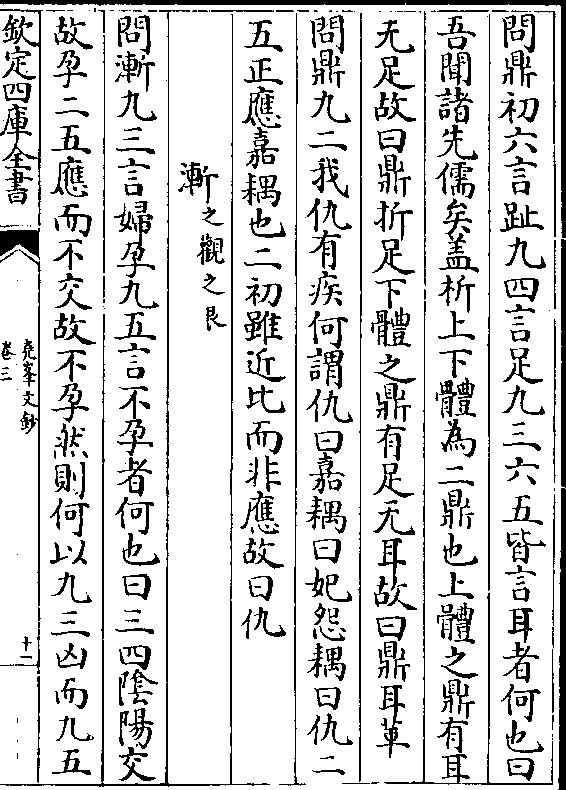 問鼎初六言趾九四言足九三六五皆言耳者何也曰
吾聞諸先儒矣盖析上下體為二鼎也上體之鼎有耳
无足故曰鼎折足下體之鼎有足无耳故曰鼎耳革
問鼎九二我仇有疾何謂仇曰嘉耦曰妃怨耦曰仇二
五正應嘉耦也二初雖近比而非應故曰仇
漸之觀之艮
問漸九三言婦孕九五言不孕者何也曰三四陰陽交
故孕二五應而不交故不孕然則何以九三凶而九五
欽定四庫全書
堯峯文鈔
卷三
十一